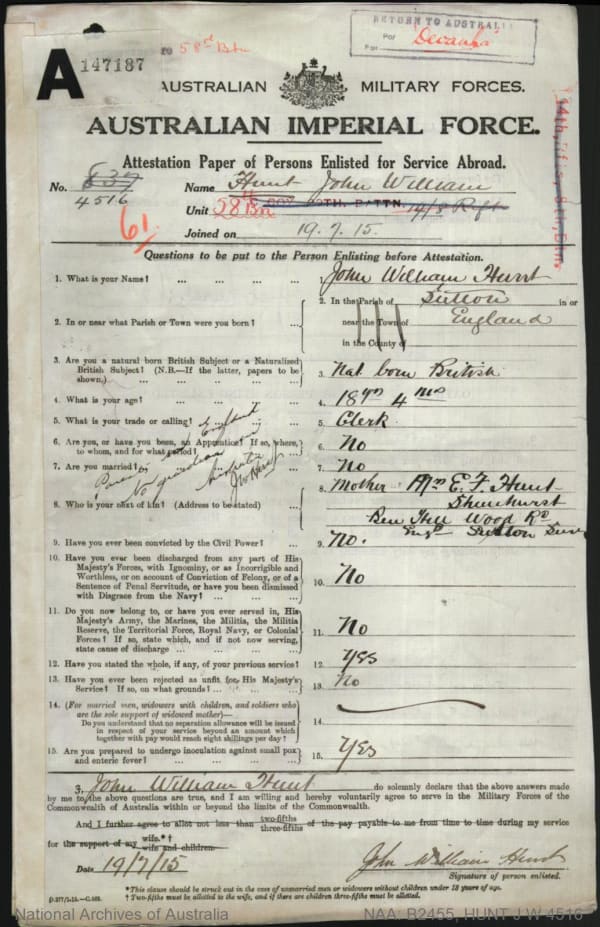 RETURN TO AUSTRALIA
Per
For "Devanha"
A 147187
to 58th Btn
AUSTRALIAN MILITARY FORCES.
AUSTRALIAN IMPERIAL FORCE.
Attestation Paper of Persons Enlisted for Service Abroad.
No. 637 Name Hunt John William
4516
Unit 58 Bn
61
Joined on 19.7.15.
Questions to be put to the Person Enlisting before Attestation.
1. What is your Name? ... ... ... 1. John William Hunt
2. In or near what Parish or Town were you born? ... 2. In the Parish of Sutton in or
near the Town of England
in the County of
3. Are you a natural born British Subject or a Naturalized
British Subject? (N.B.—If the latter, papers to be
shown.) ... ... ... 3. Nat born British
4. What is your age? ... ... ... 4. 18 yrs 4 mos
5. What is your trade or calling? ... 5. Clerk
6. Are you, or have you been, an Apprentice? If so, where,
to whom, and for what period? 6. No
7. Are you married? 7. No
Parents
No guardian
in Australia
JWHunt
8. Who is your next of kin? (Address to be stated) ... 8. Mother Mrs E. F. Hunt
Hill Wood Rd
Engd Sutton
9. Have you ever been convicted by the Civil Power? ... 9. No.
10. Have you ever been discharged from any part of His
Majesty's Forces, with Ignominy, or as Incorrigible and
Worthless, or on account of Conviction of Felony, or of a
Sentence of Penal Servitude, or have you been dismissed
with Disgrace from the Navy? ... ... 10. No
11. Do you now belong to, or have you ever served in, His
Majesty's Army, the Marines, the Militia, the Militia
Reserve, the Territorial Force, Royal Navy, or Colonial
Forces? If so, state which, and if not now serving,
state cause of discharge ... ... ... 11. No
12. Have you stated the whole, if any, of your previous service? 12. Yes
13. Have you ever been rejected as unfit for His Majesty's
Service? If so, on what grounds? ... ... 13. No
14. (For married men, widowers with children, and soldiers who
are the sole support of widowed mother)—
Do you understand that no separation allowance will be issued
in respect of your service beyond an amount which
together with pay would reach eight shillings per day? 14.
15. Are you prepared to undergo inoculation against small pox
and enteric fever? ... ... ... 15. Yes
I, John William Hunt do solemnly declare that the above answers made
by me to the above questions are true, and I am willing and hereby voluntarily agree to serve in the Military Forces of the
Commonwealth of Australia within or beyond the limits of the Commonwealth.
And I further agree to allot not less than two-fifths three-fifths of the pay payable to me from time to time during my service
for the support of my wife.*† wife and children.
Date 19/7/15 John William Hunt
Signature of person enlisted.
*This clause should be struck out in the case of unmarried men or widowers without children under 18 years of age.
† Two-fifths must be allotted to the wife, and if there are children three-fifths must be allotted.
National Archives of Australia NAA: B2455, HUNT J W 4516